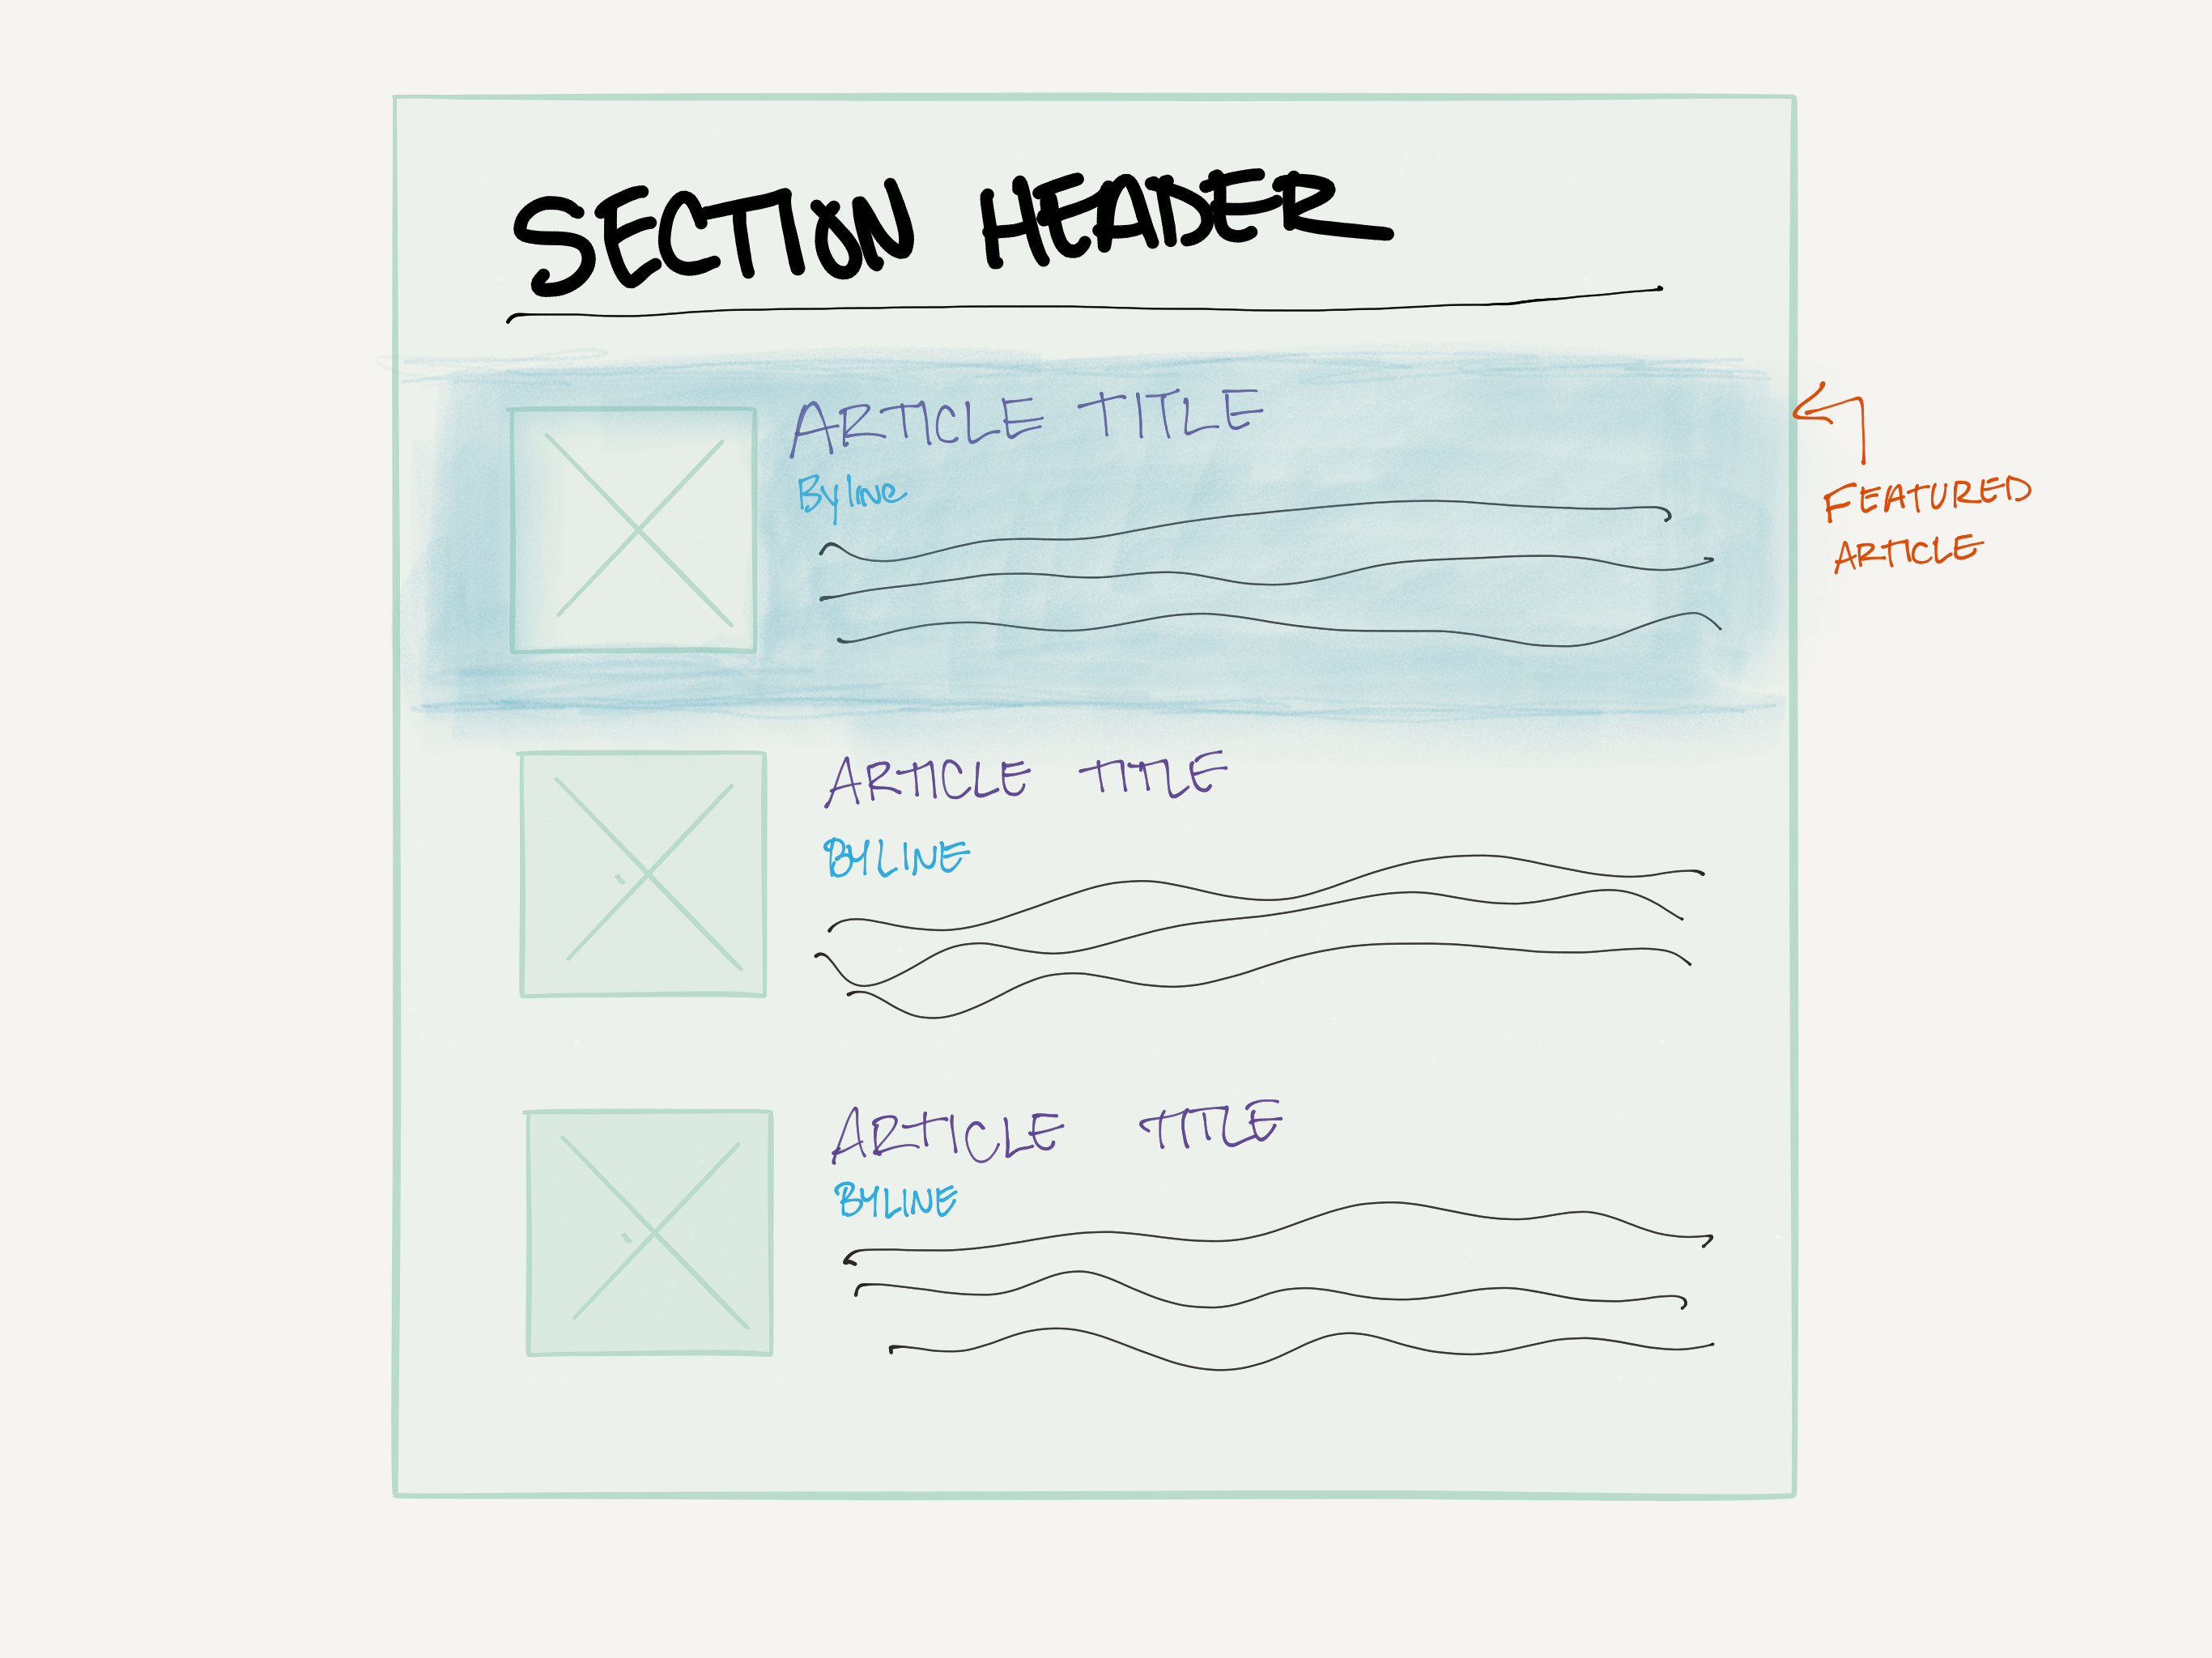 SECTION HEADER
ARTICLE TITLE
Byline
FEATURED
ARTICLE
ARTICLE TITLE
BYLINE
ARTICLE TITLE
BYLINE